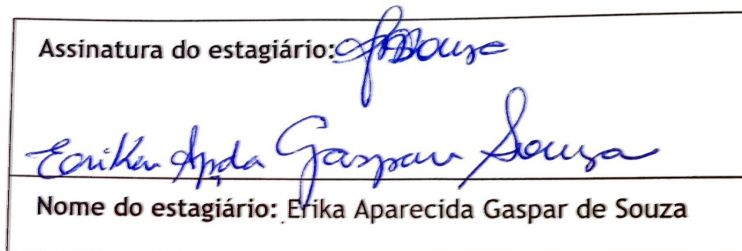 Assinatura do estagiário:
Erika Apda Gaspar Souza
Nome do estagiário: Erika Aparecida Gaspar de Souza